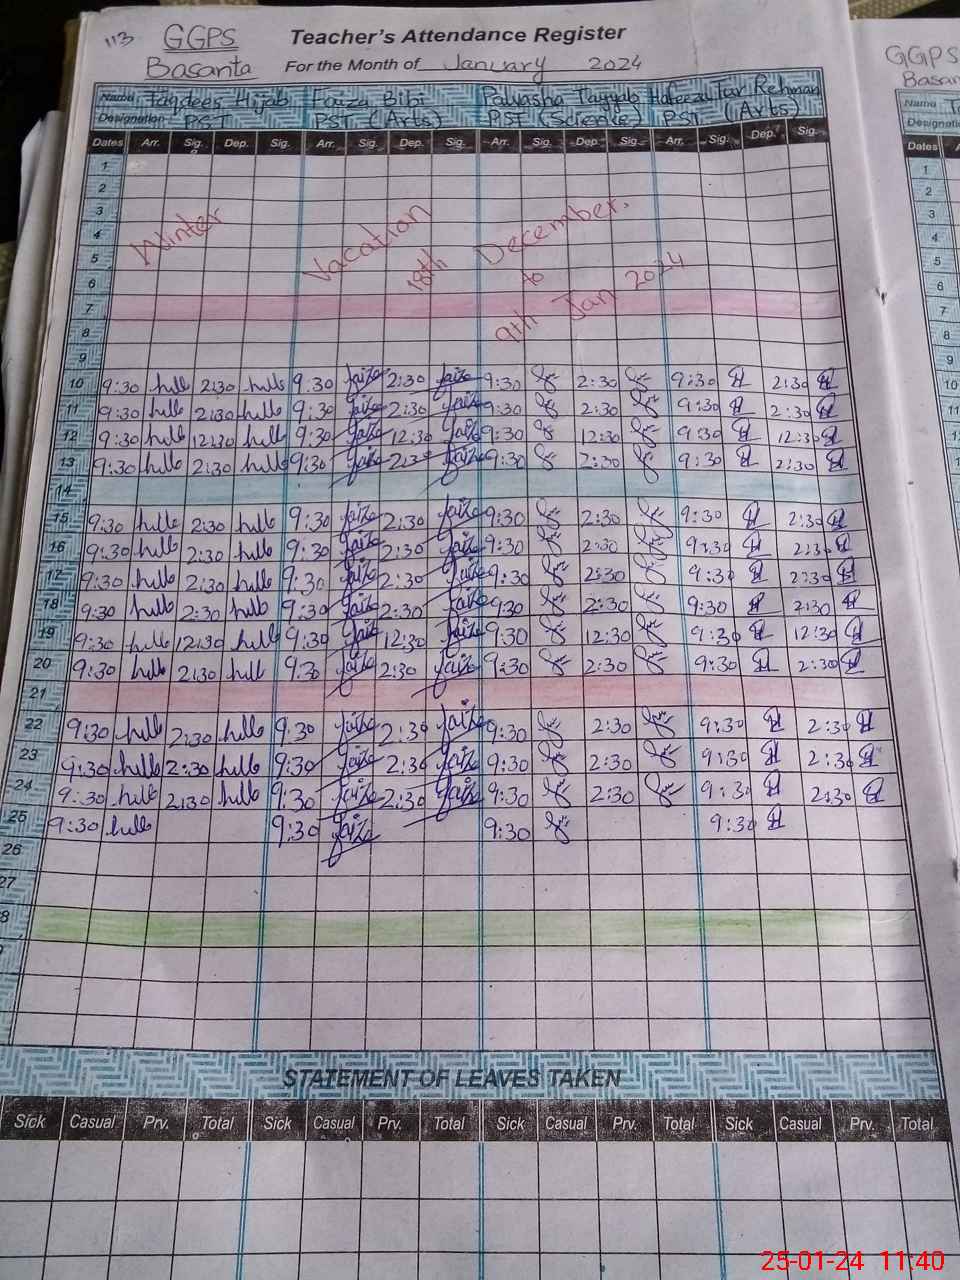 113 GGPS Teacher's Attendance Register
Basanta For the Month of January 2024
Name Taqdees Hijab Faiza Bibi Palwasha Tayyab Hafeeza Tur Rehman
Designation PST PST (Arts) PST (Science) PST (Arts)
Dates Arr. Sig. Dep. Sig. Arr. Sig. Dep. Sig. Arr. Sig. Dep. Sig. Arr. Sig. Dep. Sig.
1
2
3
4
5
6
7
8
9
Winter Vacation 18th December.
to
9th Jan 2024
10 9:30 2:30 9:30 faiza 2:30 faiza 9:30 2:30 9:30 2:30
11 9:30 2:30 9:30 faiza 2:30 faiza 9:30 2:30 9:30 2:30
12 9:30 12:30 9:30 faiza 12:30 faiza 9:30 12:30 9:30 12:30
13 9:30 2:30 9:30 faiza 2:30 faiza 9:30 2:30 9:30 2:30
14
15 9:30 2:30 9:30 faiza 2:30 faiza 9:30 2:30 9:30 2:30
16 9:30 2:30 9:30 faiza 2:30 faiza 9:30 2:30 9:30 2:30
17 9:30 2:30 9:30 faiza 2:30 faiza 9:30 2:30 9:30 2:30
18 9:30 2:30 9:30 faiza 2:30 faiza 9:30 2:30 9:30 2:30
19 9:30 12:30 9:30 faiza 12:30 faiza 9:30 12:30 9:30 12:30
20 9:30 2:30 9:30 faiza 2:30 faiza 9:30 2:30 9:30 2:30
21
22 9:30 2:30 9:30 faiza 2:30 faiza 9:30 2:30 9:30 2:30
23 9:30 2:30 9:30 faiza 2:30 faiza 9:30 2:30 9:30 2:30
24 9:30 2:30 9:30 faiza 2:30 faiza 9:30 2:30 9:30 2:30
25 9:30 9:30 faiza 9:30 9:30
26
27
8
STATEMENT OF LEAVES TAKEN
Sick Casual Prv. Total Sick Casual Prv. Total Sick Casual Prv. Total Sick Casual Prv. Total
GGPS
Name
Dates
1
2
3
4
5
6
7
8
9
10
11
25-01-24 11:40